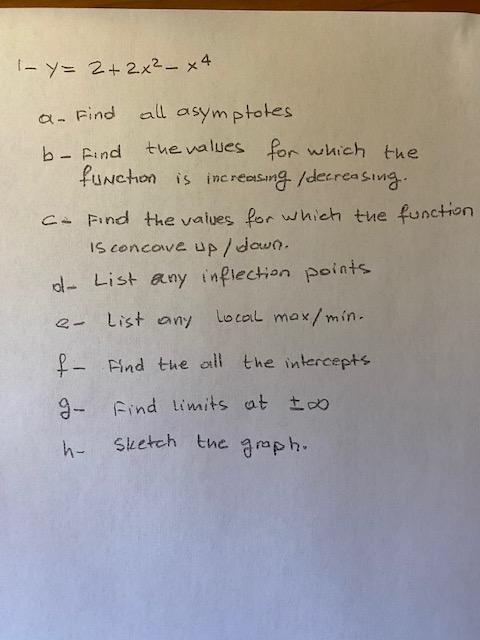 1- y = 2 + 2x² - x⁴
a- Find all asymptotes
b- Find the values for which the
function is increasing /decreasing.
c- Find the values for which the function
is concave up / down.
d- List any inflection points
e- List any local max/min.
f- Find the all the intercepts
g- Find limits at ±∞
h- Sketch the graph.